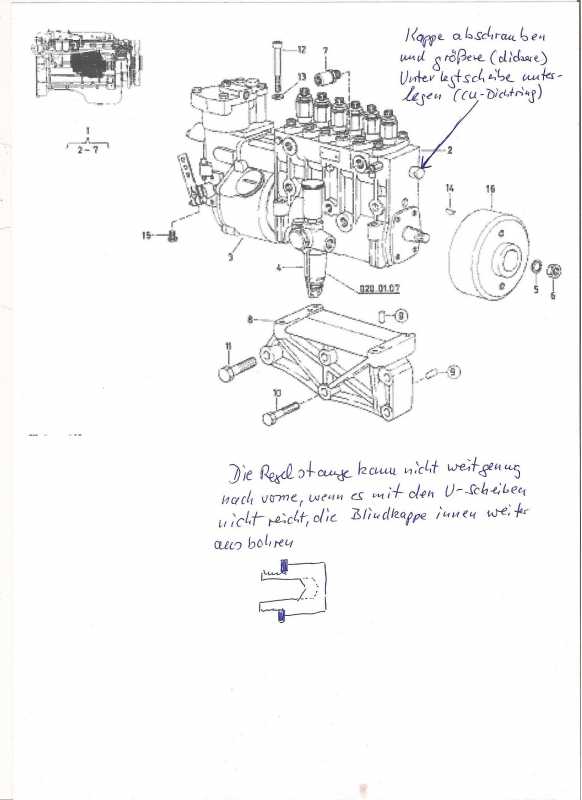 Kappe abschrauben
und größere (dickere)
Unterlegtscheibe unter-
legen (CU-Dichtring)
12
7
13
1
2 - 7
2
14
16
15
3
4
020.01.07
5
6
8
9
11
9
10
Die Regelstange kann nicht weit genug
nach vorne, wenn es mit den U-Scheiben
nicht reicht, die Blindkappe innen weiter
ausbohren